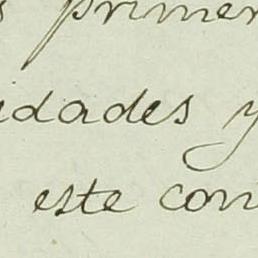 s primer
idades y
este con